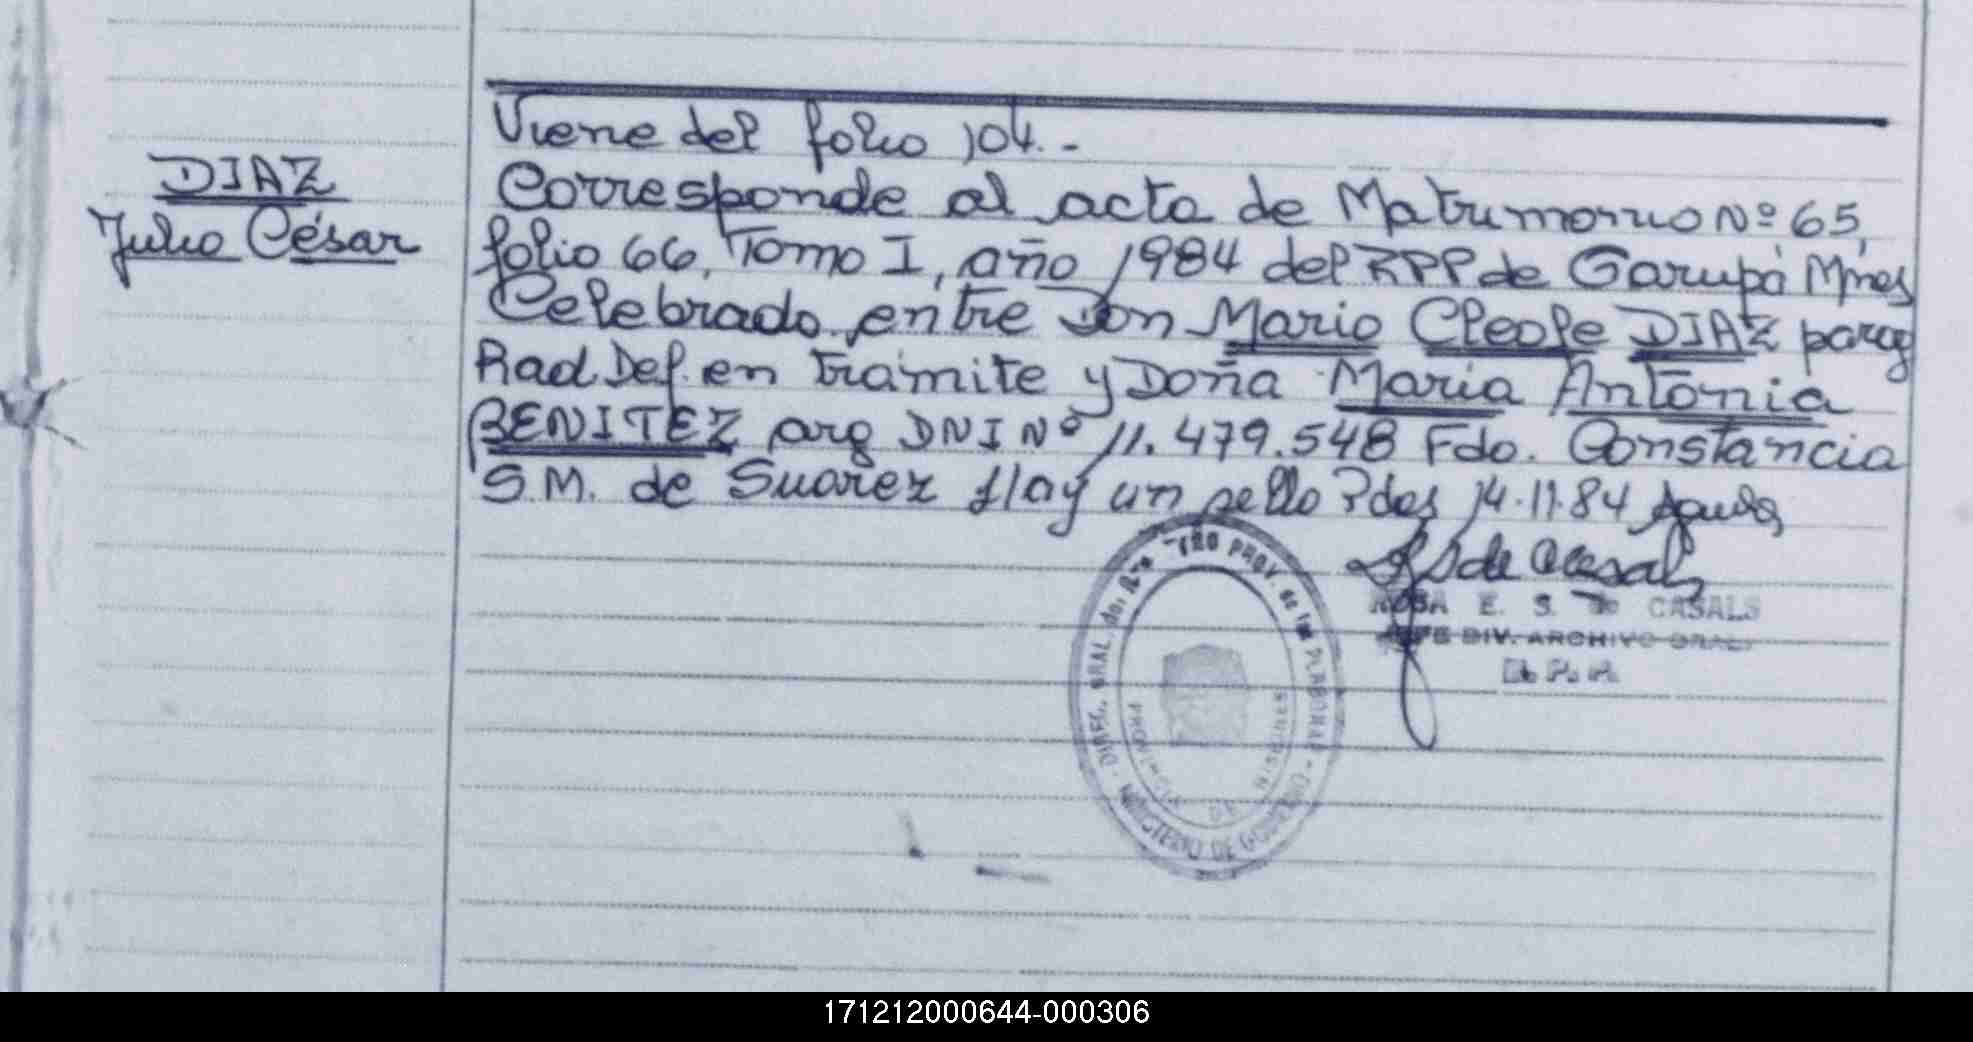 Viene del folio 104.-
DIAZ
Julio César
Corresponde al acta de Matrimonio Nº 65,
folio 66, Tomo I, año 1984 del RPP de Garupá Mnes
Celebrado entre Don Mario Cleofe DIAZ parag
Rad Def. en trámite y Doña Maria Antonia
BENITEZ arg DNI Nº 11.479.548 Fdo. Constancia
S.M. de Suarez Hay un sello Pdas 14.11.84
ROSA E. S. de CASALS
JEFE DIV. ARCHIVO GRAL.
D.P.R.
DIREC. GRAL. del PROV. de las PERSONAS - MINISTERIO DE GOBIERNO
PROVINCIA DE MISIONES
171212000644-000306